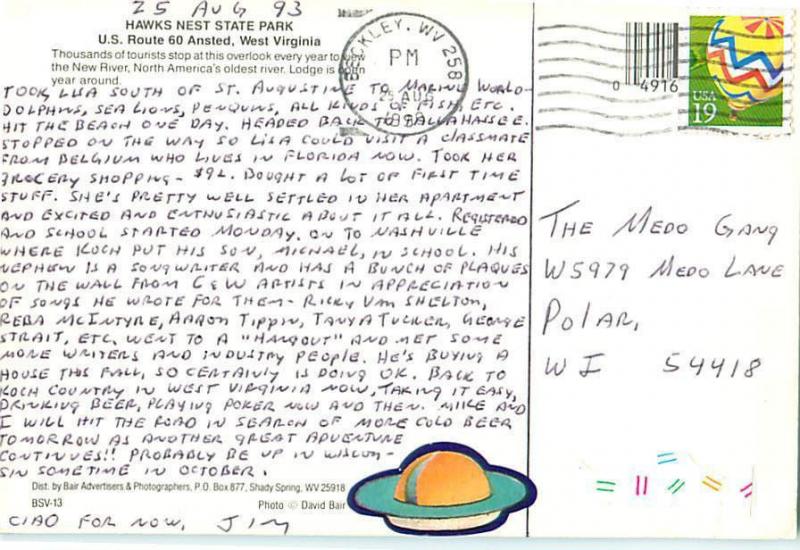 25 AUG 93
HAWKS NEST STATE PARK
U.S. Route 60 Ansted, West Virginia
Thousands of tourists stop at this overlook every year to view
the New River, North America's oldest river. Lodge is open
year around.
TOOK LISA SOUTH OF ST. AUGUSTINE TO MARINE WORLD-
DOLPHINS, SEA LIONS, PENGUINS, ALL KINDS OF FISH, ETC.
HIT THE BEACH ONE DAY. HEADED BACK TO TALLAHASSEE.
STOPPED ON THE WAY SO LISA COULD VISIT A CLASSMATE
FROM BELGIUM WHO LIVES IN FLORIDA NOW. TOOK HER
GROCERY SHOPPING - $92. BOUGHT A LOT OF FIRST TIME
STUFF. SHE'S PRETTY WELL SETTLED IN HER APARTMENT
AND EXCITED AND ENTHUSIASTIC ABOUT IT ALL. REGISTERED
AND SCHOOL STARTED MONDAY. ON TO NASHVILLE
WHERE KOCH PUT HIS SON, MICHAEL, IN SCHOOL. HIS
NEPHEW IS A SONGWRITER AND HAS A BUNCH OF PLAQUES
ON THE WALL FROM C&W ARTISTS IN APPRECIATION
OF SONGS HE WROTE FOR THEM - RICKY VAN SHELTON,
REBA MCINTYRE, AARON TIPPIN, TANYA TUCKER, GEORGE
STRAIT, ETC. WENT TO A "HANGOUT" AND MET SOME
MORE WRITERS AND INDUSTRY PEOPLE. HE'S BUYING A
HOUSE THIS FALL, SO CERTAINLY IS DOING OK. BACK TO
KOCH COUNTRY IN WEST VIRGINIA NOW, TAKING IT EASY,
DRINKING BEER, PLAYING POKER NOW AND THEN. MIKE AND
I WILL HIT THE ROAD IN SEARCH OF MORE COLD BEER
TOMORROW AS ANOTHER GREAT ADVENTURE
CONTINUES!! PROBABLY BE UP IN WISCON-
SIN SOMETIME IN OCTOBER.
Dist. by Bair Advertisers & Photographers, P.O. Box 877, Shady Spring, WV 25918
BSV-13 Photo © David Bair
CIAO FOR NOW, JIM
BECKLEY, WV 258
PM
AUG
1993
0 4916
USA
19
THE MEDO GANG
W5979 MEDO LANE
POLAR,
WI 54418